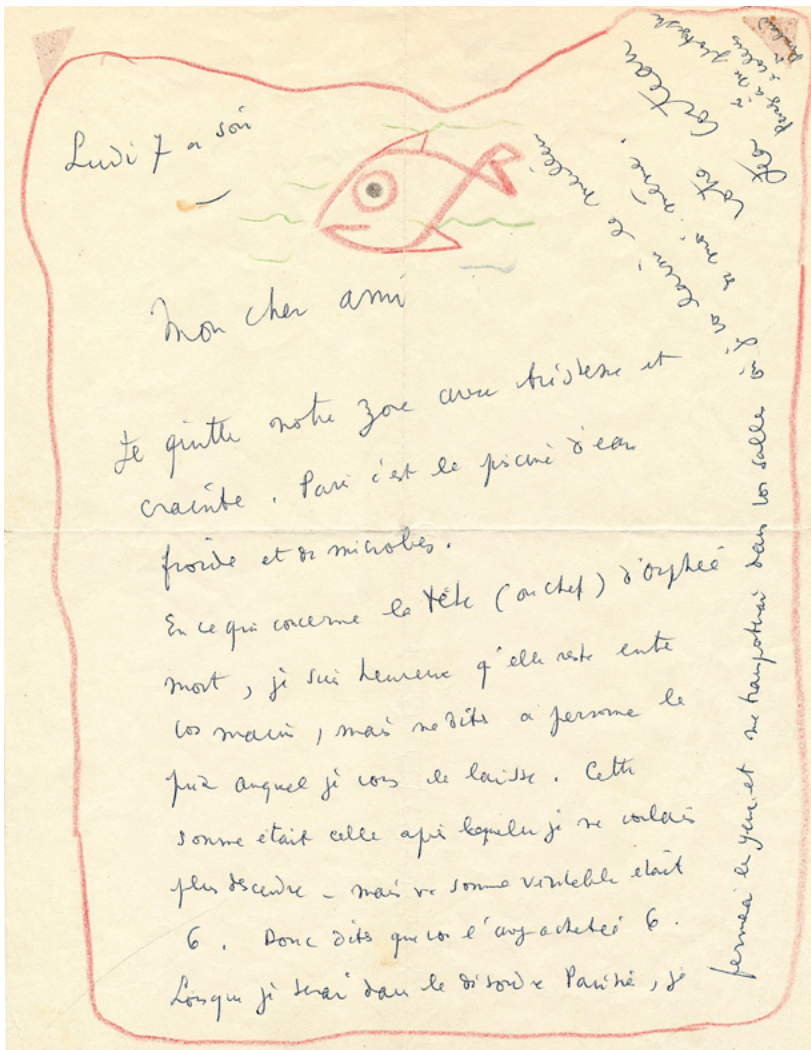 Lundi 7 au soir
Mon cher ami
Je quitte notre zone avec tristesse et
crainte. Paris c'est la piscine d'eau
froide et de microbes.
En ce qui concerne la tête (ou chef) d'Orphée
mort, je suis heureux qu'elle reste entre
vos mains, mais ne dites a personne le
prix auquel je vous le laisse. Cette
somme était celle après laquelle je ne voulais
plus descendre - mais sa somme véritable était
6. Donc dites que vous l'avez achetée 6.
Lorsque je serai dans le désordre Parisien, je
fermerai les yeux et me transporterai dans vos salles où j'ai
laissé le meilleur
de moi-même.
votre Cocteau